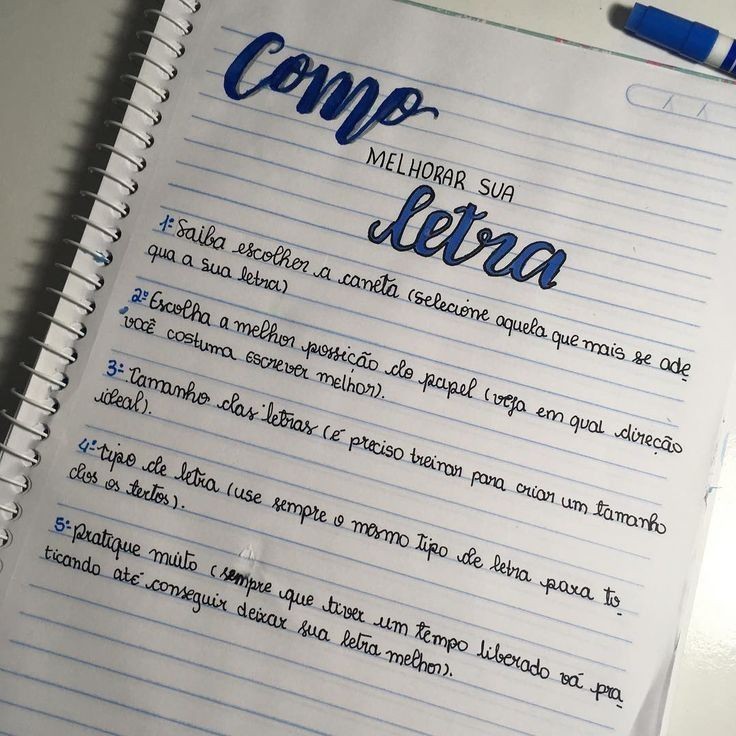 Como
MELHORAR SUA
letra
1º Saiba escolher a caneta (selecione aquela que mais se ade
qua a sua letra)
2º Escolha a melhor possição do papel (veja em qual direção
você costuma escrever melhor).
3º Tamanho das letras (é preciso treinar para criar um tamanho
ideal).
4º tipo de letra (use sempre o mesmo tipo de letra para to
dos os textos).
5º pratique muito (sempre que tiver um tempo liberado vá pra
ticando até conseguir deixar sua letra melhor).